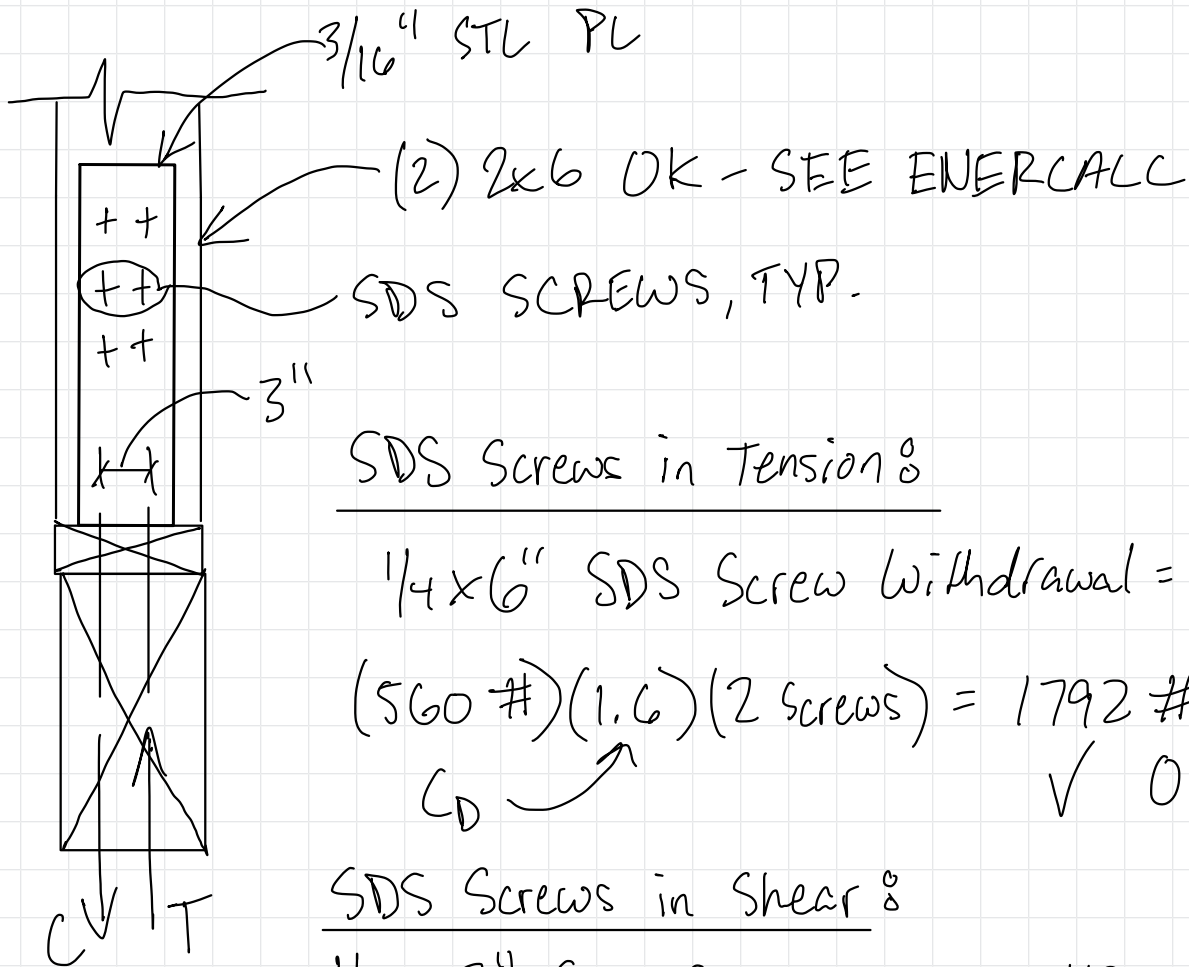 3/16" STL PL
(2) 2x6 OK - SEE ENERCALC
SDS SCREWS, TYP.
3"
SDS Screws in Tension:
1/4x6" SDS Screw Withdrawal =
(560 #)(1.6)(2 Screws) = 1792 #
CD
✓ O
SDS Screws in Shear:
C T